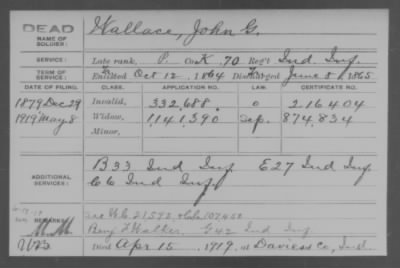 DEAD
NAME OF SOLDIER: Wallace, John G.
SERVICE: Late rank, P. Co. K, 70 Reg't Ind. Inf.
TERM OF SERVICE: Enlisted Oct 12, 1864 Discharged June 8, 1865
DATE OF FILING. CLASS. APPLICATION NO. LAW. CERTIFICATE NO.
1879 Dec 29 Invalid, 332,688. 216404
1919 May 8 Widow, 1,141,390 Sep. 874,834
Minor,
ADDITIONAL SERVICES: B 33 Ind Inf. E 27 Ind Inf.
Ind Inf
REMARKS:
Benj F Walker. G 42 Ind Inf
Died Apr 15, 1919, at Daviess Co, Ind.